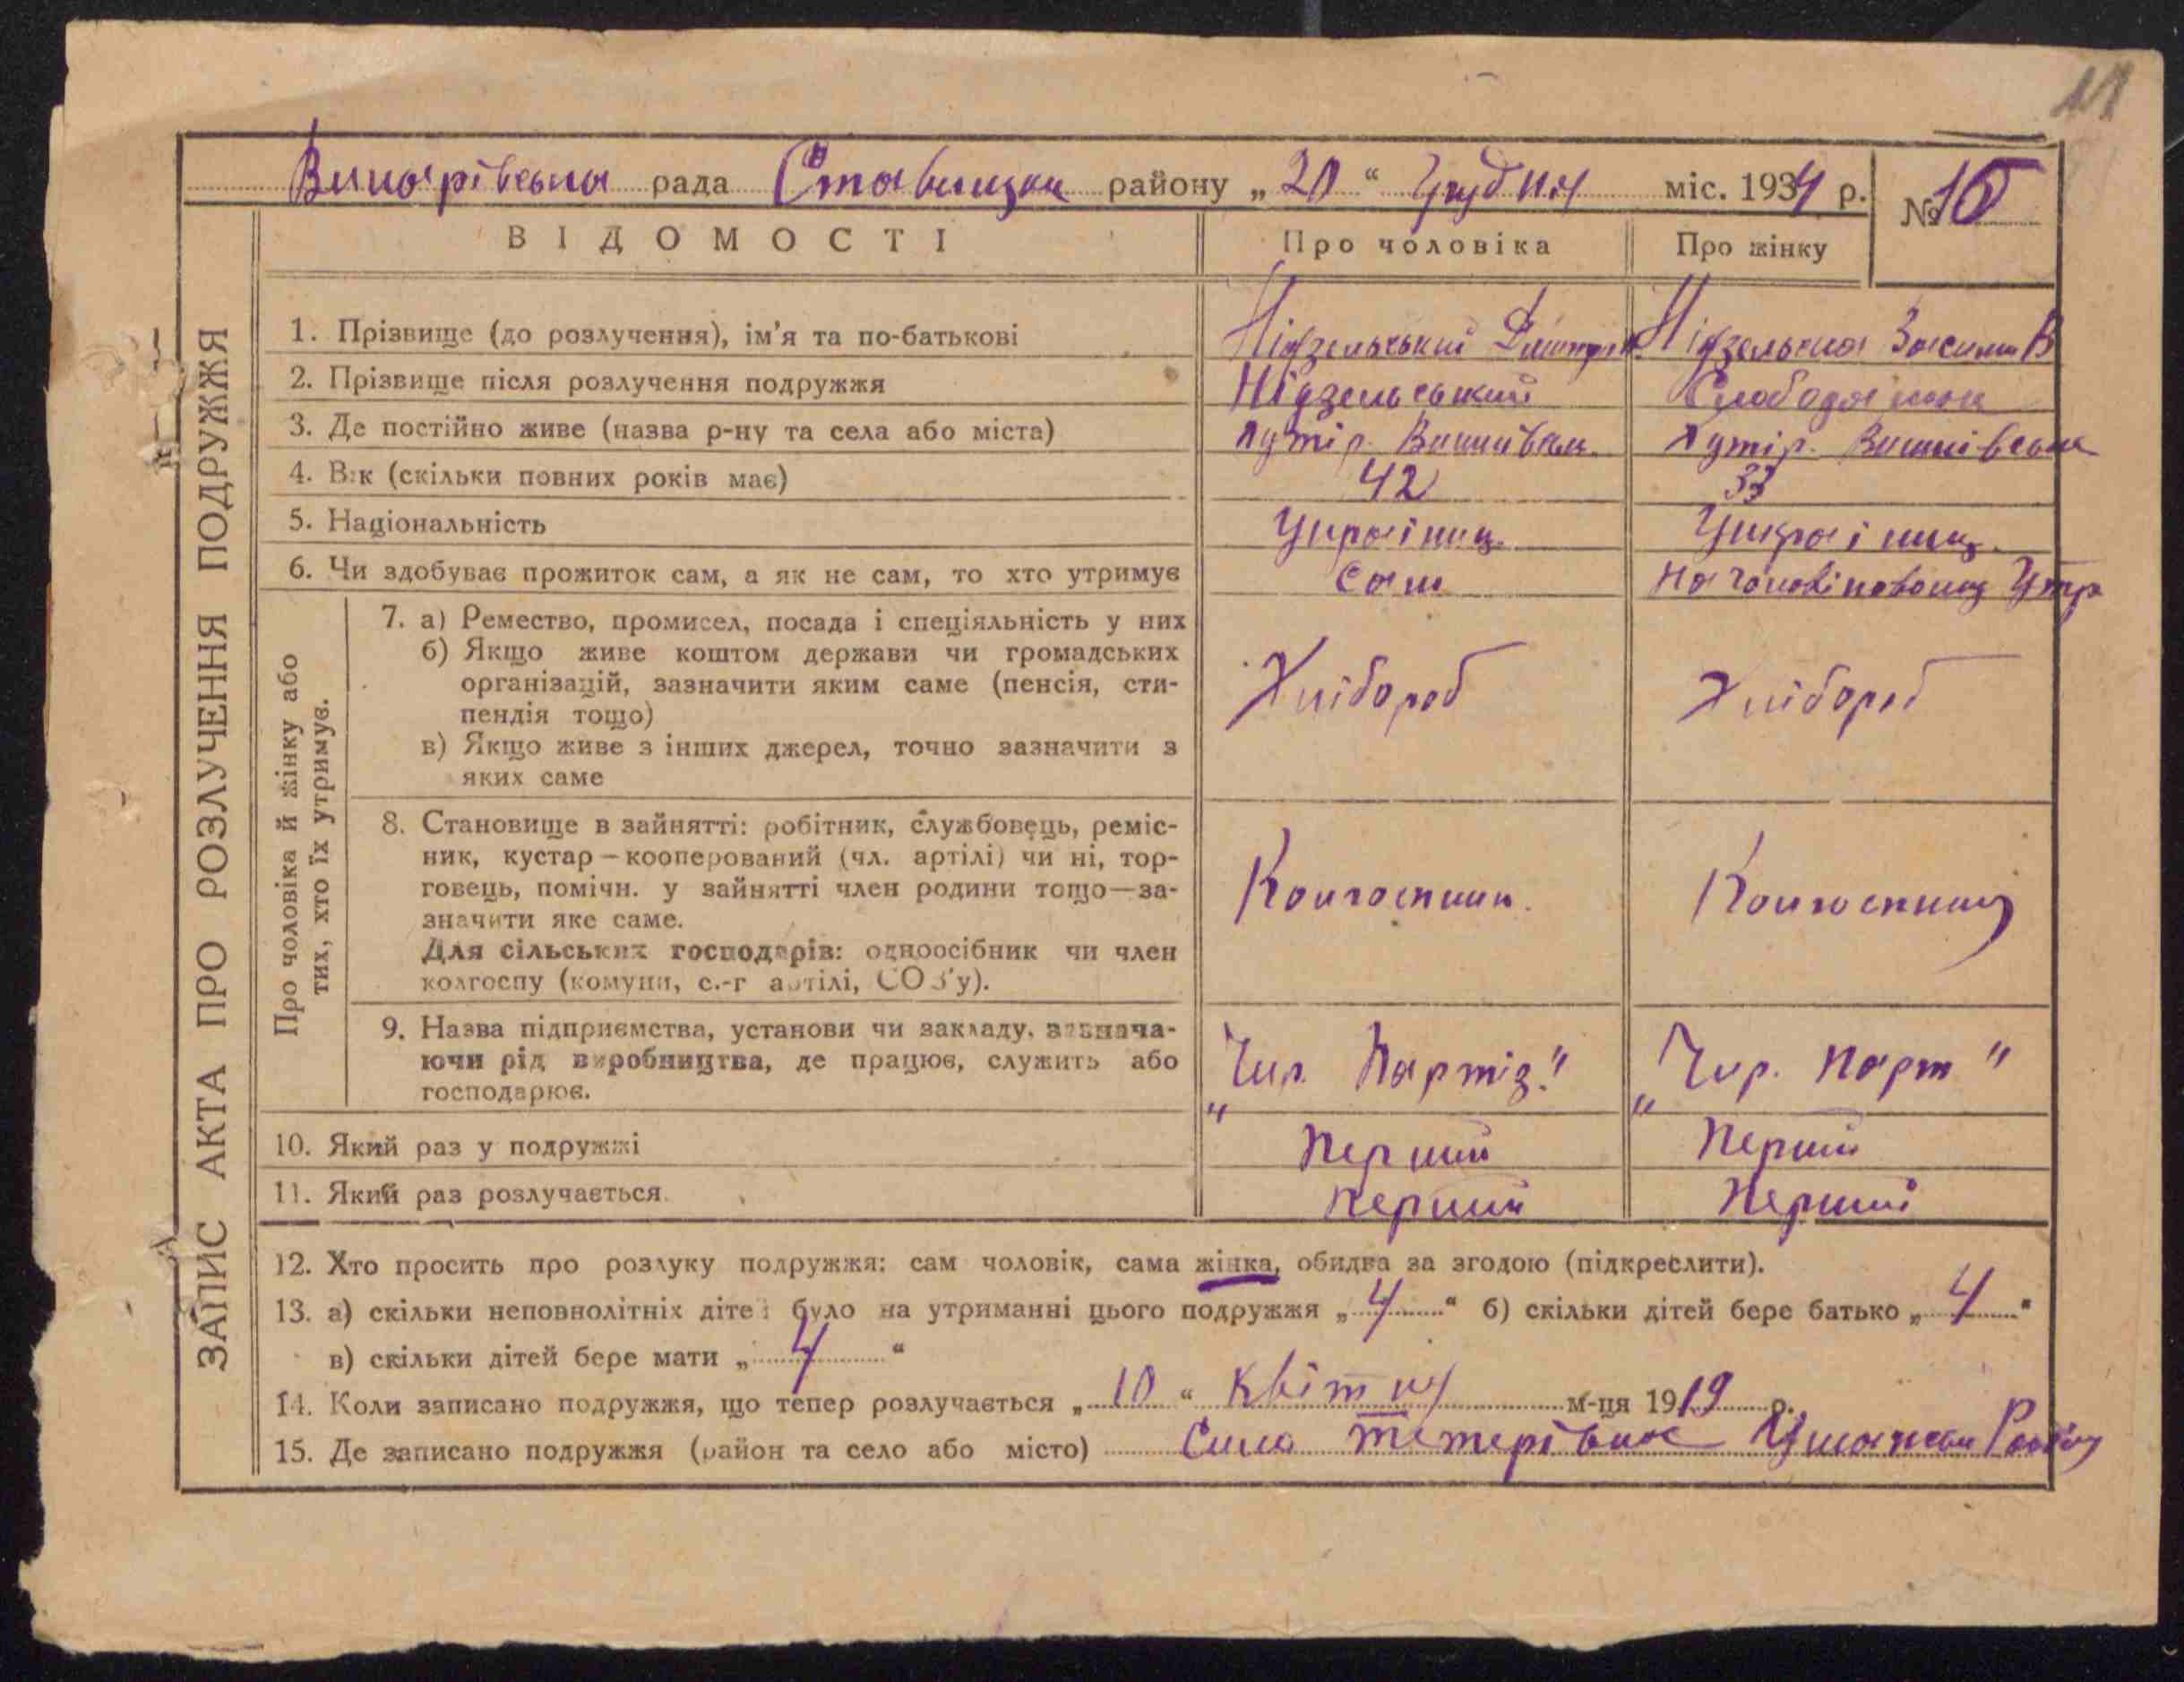 11
Винарівська рада Ставищан району „20“ Грудня міс. 1934 р.
№ 15
ВІДОМОСТІ
Про чоловіка
Про жінку
ЗАПИС АКТА ПРО РОЗЛУЧЕННЯ ПОДРУЖЖЯ
1. Прізвище (до розлучення), ім’я та по-батькові
Нідзельський Дмитро
Нідзельська В
2. Прізвище після розлучення подружжя
Нідзельський
3. Де постійно живе (назва р-ну та села або міста)
хутір.
хутір.
4. Вік (скільки повних років має)
42
33
5. Національність
Украінец.
Украінец.
6. Чи здобуває прожиток сам, а як не сам, то хто утримує
Сам
На чоловіковому утр
Про чоловіка й жінку або тих, хто їх утримує.
7. а) Ремество, промисел, посада і спеціяльність у них
б) Якщо живе коштом держави чи громадських
організацій, зазначити яким саме (пенсія, сти-
пендія тощо)
Хлібороб
Хлібороб
в) Якщо живе з інших джерел, точно зазначити з
яких саме
8. Становище в зайнятті: робітник, службовець, реміс-
ник, кустар — кооперований (чл. артілі) чи ні, тор-
говець, помічн. у зайнятті член родини тощо—за-
значити яке саме.
Для сільських господарів: одноосібник чи член
колгоспу (комуни, с.-г артілі, СОЗ’у).
Колгоспник.
Колгоспниц
9. Назва підприємства, установи чи закладу, зазнача-
ючи рід виробництва, де працює, служить або
господарює.
„Чир. Партіз.“
„Чир. Парт“
10. Який раз у подружжі
Перший
Перший
11. Який раз розлучається
Перший
Перший
12. Хто просить про розлуку подружжя: сам чоловік, сама жінка, обидва за згодою (підкреслити).
13. а) скільки неповнолітніх дітей було на утриманні цього подружжя „4“ б) скільки дітей бере батько „4“
в) скільки дітей бере мати „4“
14. Коли записано подружжя, що тепер розлучається „10“ Квітня м-ця 1919 р.
15. Де записано подружжя (район та село або місто) Село Тетерівка